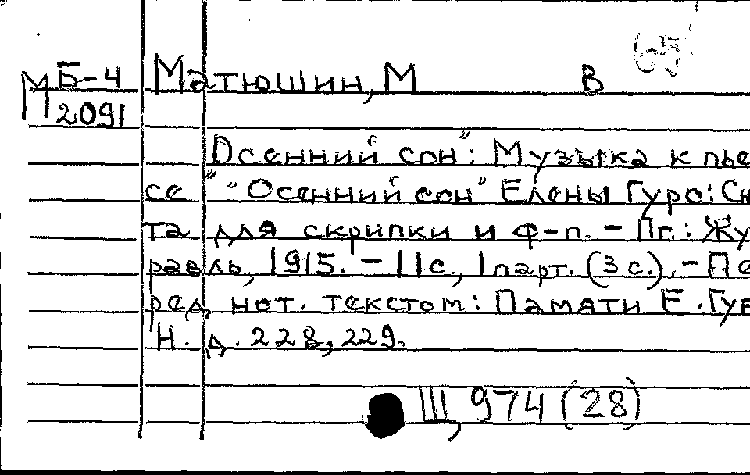 М Б-4 Матюшин, М В
2091
"Осенний сон": Музыка к пье
се "Осенний сон" Елены Гуро: Сю
та для скрипки и ф-п. - Пг.: Жу
равль, 1915. - 11 с., 1 парт. (3 с.). - Пе
ред нот. текстом: Памяти Е. Гур
Н. д. 228, 229.
Щ 974 (28)